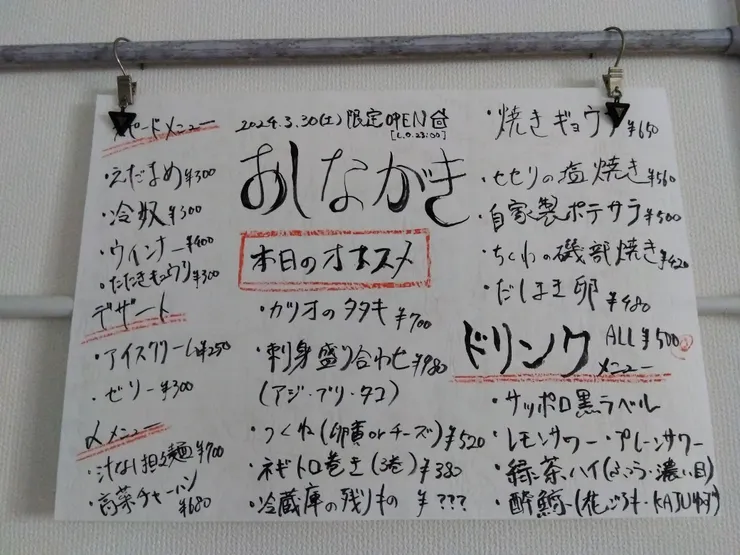 スピードメニュー
・えだまめ ¥300
・冷奴 ¥300
・ウィンナー ¥400
・たたきキュウリ ¥300
デザート
・アイスクリーム ¥250
・ゼリー ¥300
〆メニュー
・汁なし担々麺 ¥700
・高菜チャーハン ¥680
2024.3.30(土)限定OPEN
[L.O.23:00]
おしながき
本日のオススメ
・カツオのタタキ ¥700
・刺身盛り合わせ ¥980
(アジ・ブリ・タコ)
・つくね(卵黄orチーズ) ¥520
・ネギトロ巻き(3巻) ¥380
・冷蔵庫の残りもの ¥???
・焼きギョウザ ¥650
・セセリの塩焼き ¥560
・自家製ポテサラ ¥500
・ちくわの磯部焼き ¥420
・だしまき卵 ¥480
ドリンクメニュー ALL¥500
・サッポロ黒ラベル
・レモンサワー・プレーンサワー
・緑茶ハイ(ふつう・濃い目)
・酔鯨(花ごろも・KAJUゆず)